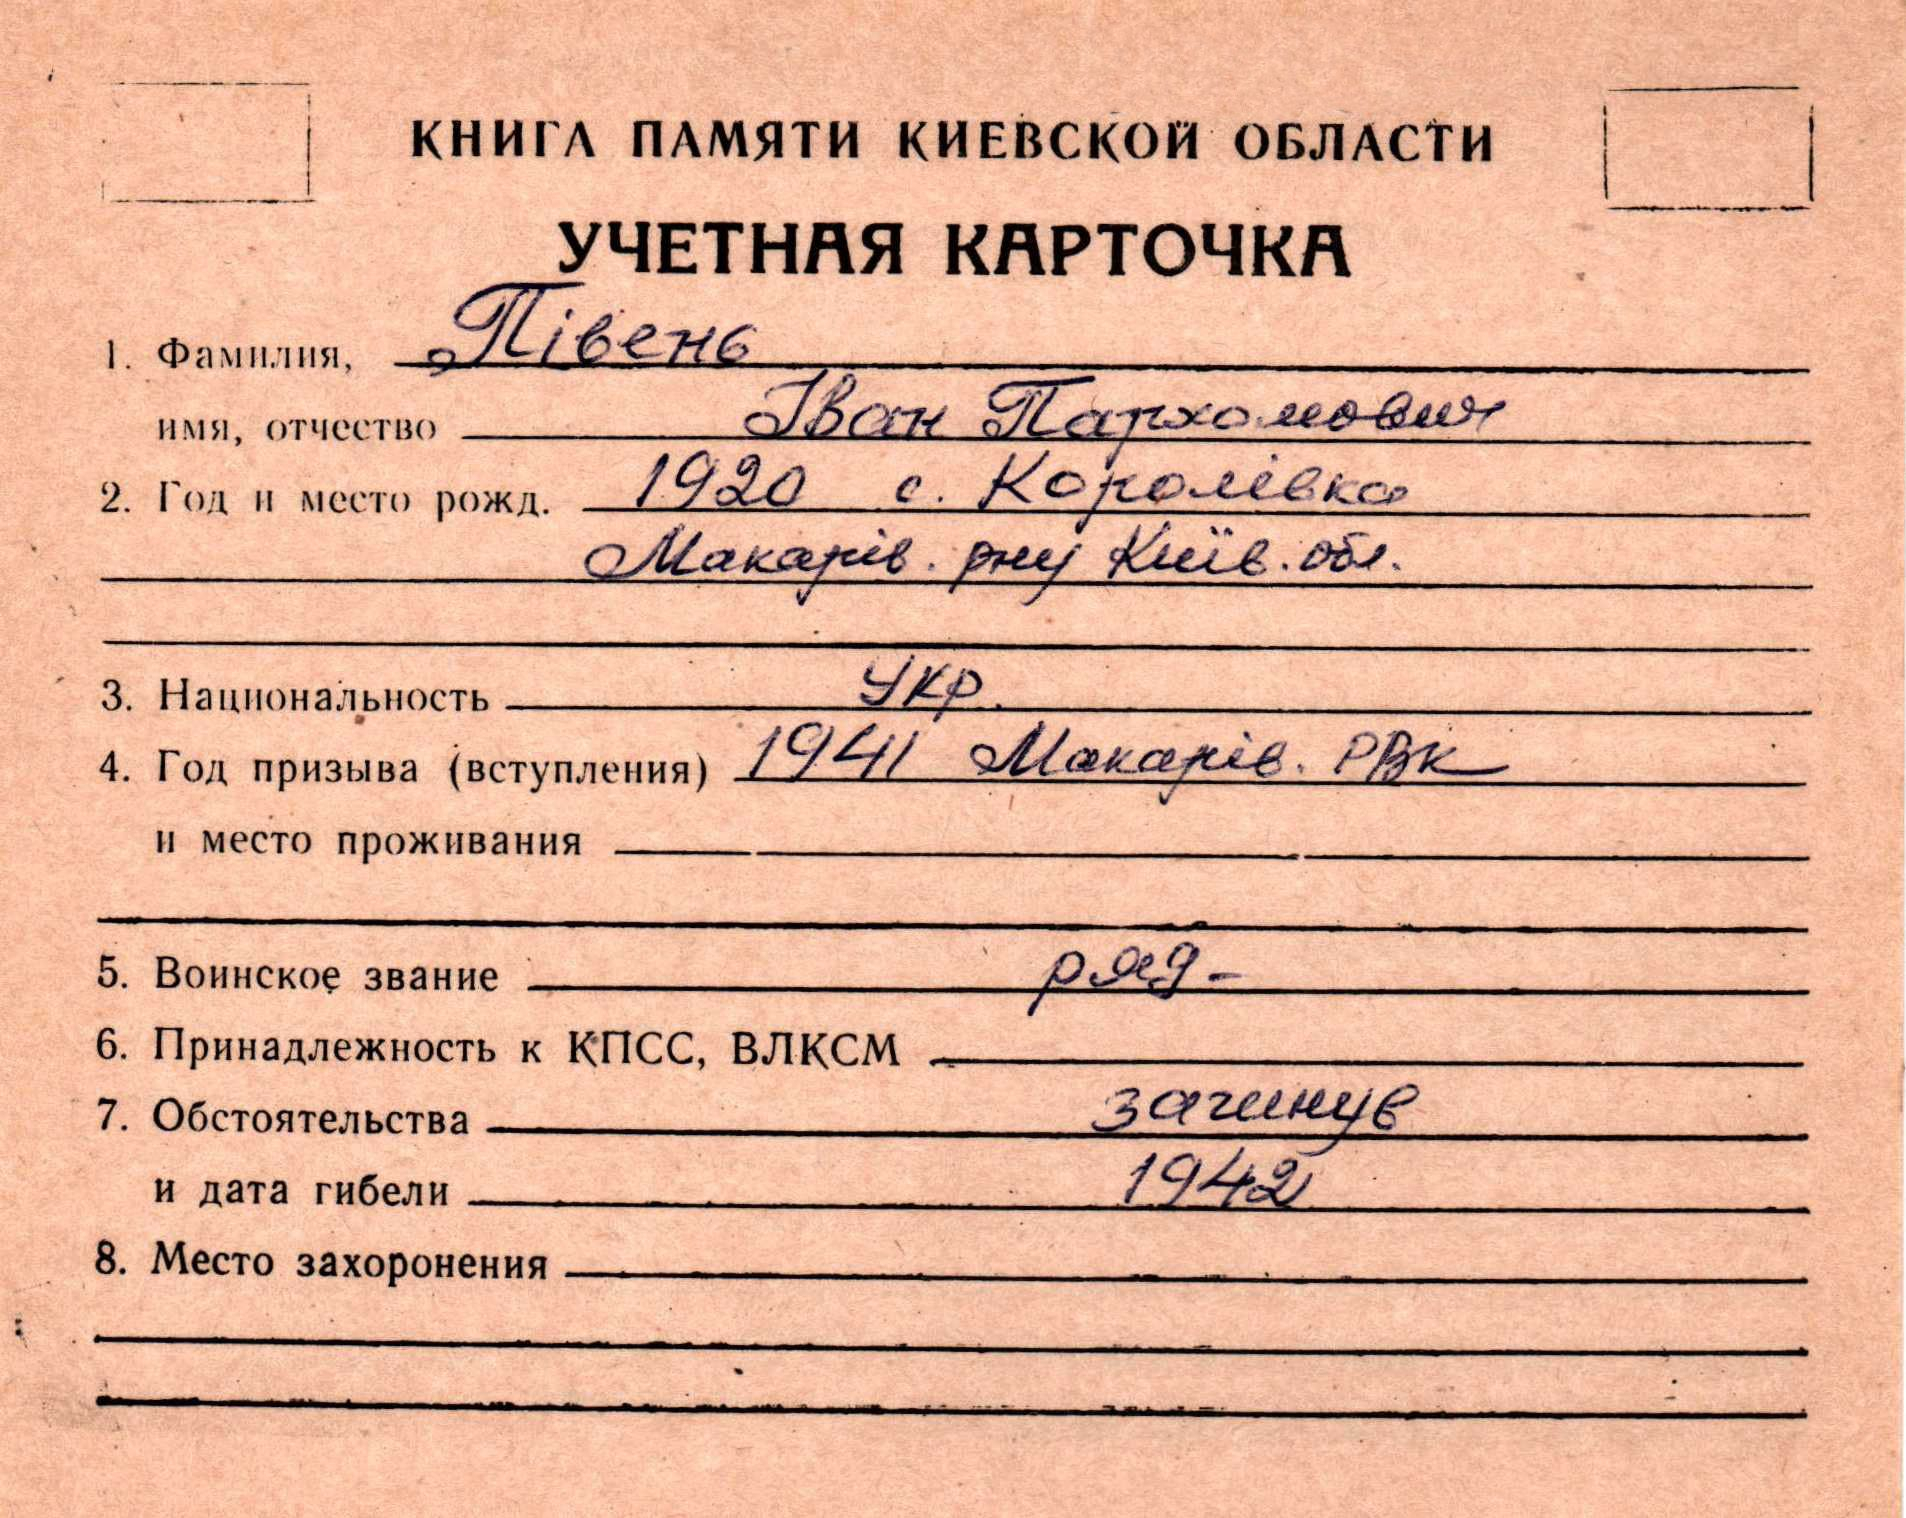 КНИГА ПАМЯТИ КИЕВСКОЙ ОБЛАСТИ
УЧЕТНАЯ КАРТОЧКА
1. Фамилия, Півень
имя, отчество Іван Пархомович
2. Год и место рожд. 1920 с. Королівка
Макарів. рну Київ. обл.
3. Национальность укр.
4. Год призыва (вступления) 1941 Макарів. РВК
и место проживания
5. Воинское звание ряд-
6. Принадлежность к КПСС, ВЛКСМ
7. Обстоятельства загинув
и дата гибели 1942
8. Место захоронения